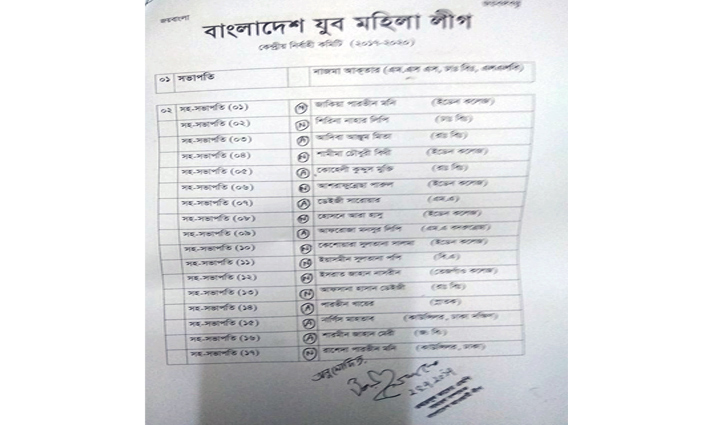 জয়বাংলা
জয়বঙ্গবন্ধু
বাংলাদেশ যুব মহিলা লীগ
কেন্দ্রীয় নির্বাহী কমিটি (২০১৭-২০২০)
০১ সভাপতি নাজমা আকতার (এম,এস এস, ঢাঃ বিঃ, এলএলবি)
০২ সহ-সভাপতি (০১) N জাকিয়া পারভীন মনি (ইডেন কলেজ)
সহ-সভাপতি (০২) N শিরিনা নাহার লিপি (ঢাঃ বিঃ)
সহ-সভাপতি (০৩) A আদিবা আঞ্জুম মিতা (রাঃ বিঃ)
সহ-সভাপতি (০৪) N শামীমা চৌধুরী (ইডেন কলেজ)
সহ-সভাপতি (০৫) A কোহেলী কুদ্দুস মুক্তি (রাঃ বিঃ)
সহ-সভাপতি (০৬) N আশরাফুন্নেছা পারুল (ইডেন কলেজ)
সহ-সভাপতি (০৭) A ডেইজী সারোয়ার (এম.এ)
সহ-সভাপতি (০৮) N হোসনে আরা হাসু (ইডেন কলেজ)
সহ-সভাপতি (০৯) A আফরোজা মনসুর লিপি (এম.এ
সহ-সভাপতি (১০) N কোহোয়ারা সুলতানা সালমা (ইডেন কলেজ)
সহ-সভাপতি (১১) N ইয়াসমীন সুলতানা পলি (বি.এ)
সহ-সভাপতি (১২) N ইসরাত জাহান নাসরীন কলেজ)
সহ-সভাপতি (১৩) N আফসানা হাসান ডেইজী (রাঃ বিঃ)
সহ-সভাপতি (১৪) A পারভীন খায়ের (স্নাতক)
সহ-সভাপতি (১৫) A নার্গিস মাহতাব (কাউন্সিলর, ঢাকা দক্ষিণ)
সহ-সভাপতি (১৬) A শারমীন জাহান মেরী (জাঃ বিঃ)
সহ-সভাপতি (১৭) N রাশেদা পারভীন মনি (কাউন্সিলর, ঢাকা)
অনুমোদিত